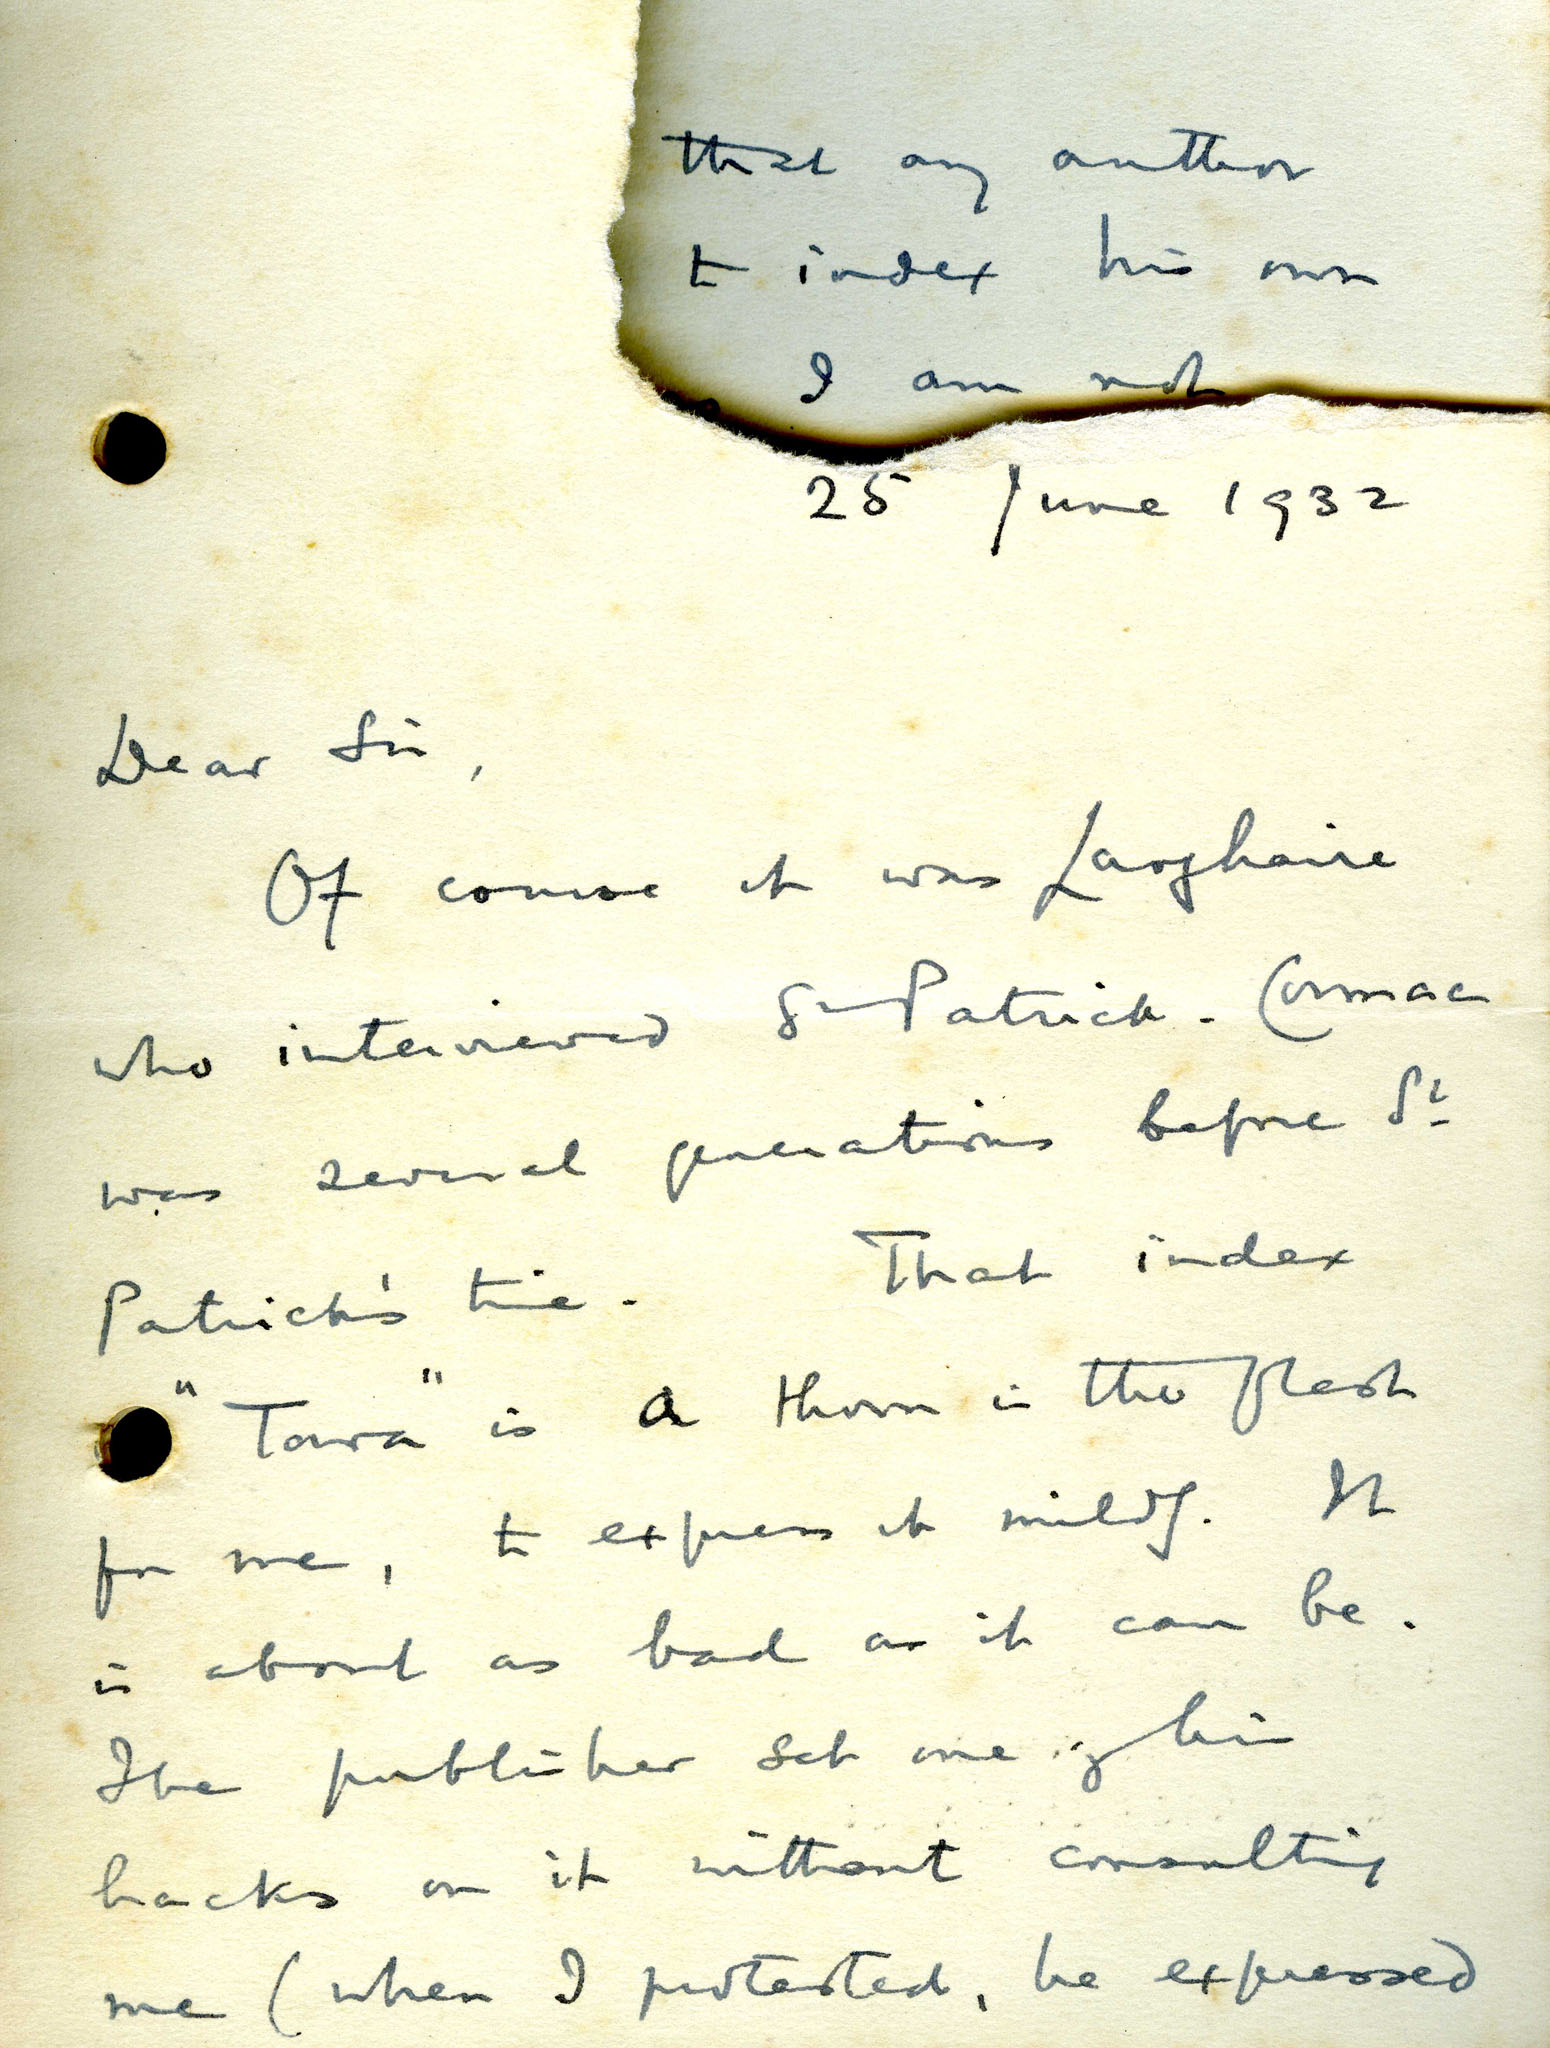 that any author
to index his own
I am not
25 June 1932
Dear Sir,
Of course it was Laoghaire
who interviewed St Patrick. Cormac
was several generations before St
Patrick's time. That index
"Tara" is a thorn in the flesh
for me, to express it mildly. It
is about as bad as it can be.
The publisher set one of his
hacks on it without consulting
me (when I protested, he expressed